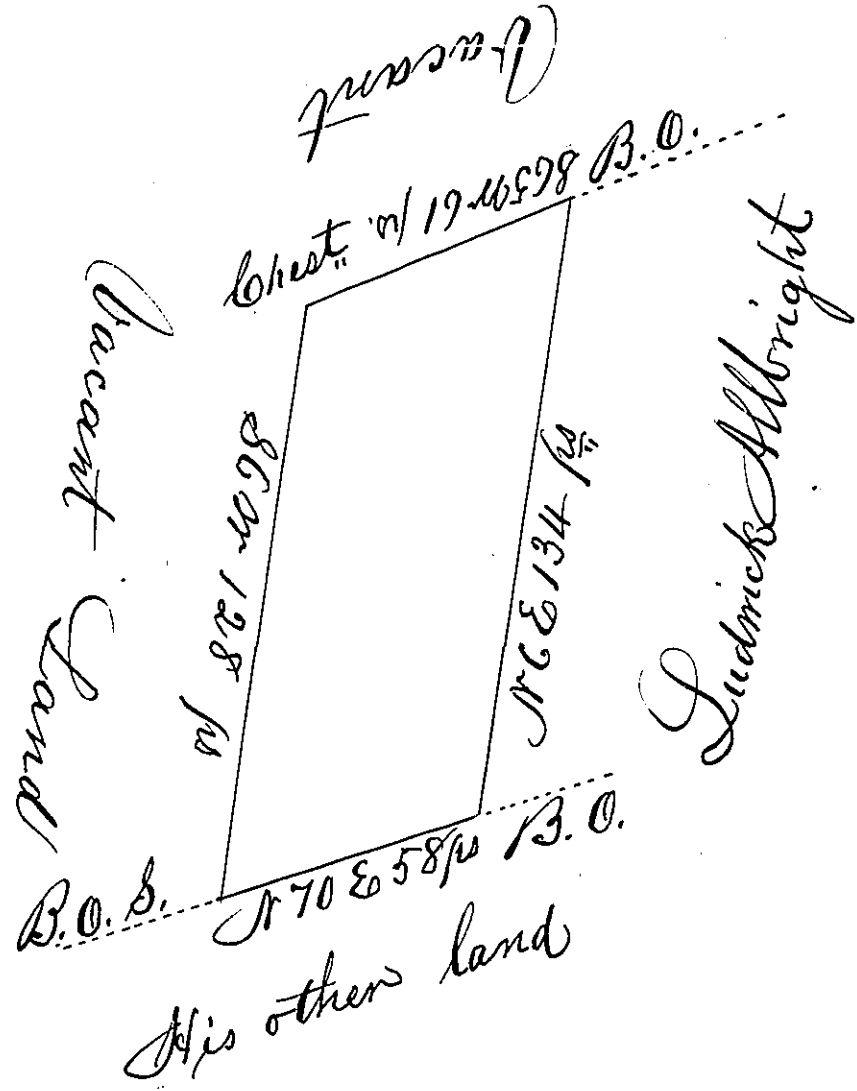 Vacant
B.O.
S65W 61 ps.
Chest"
Vacant Land
S6W 128 ps
N6E 134 ps
Ludwick Allbright
B.O.
N70E 58ps
B.O.S.
His other land